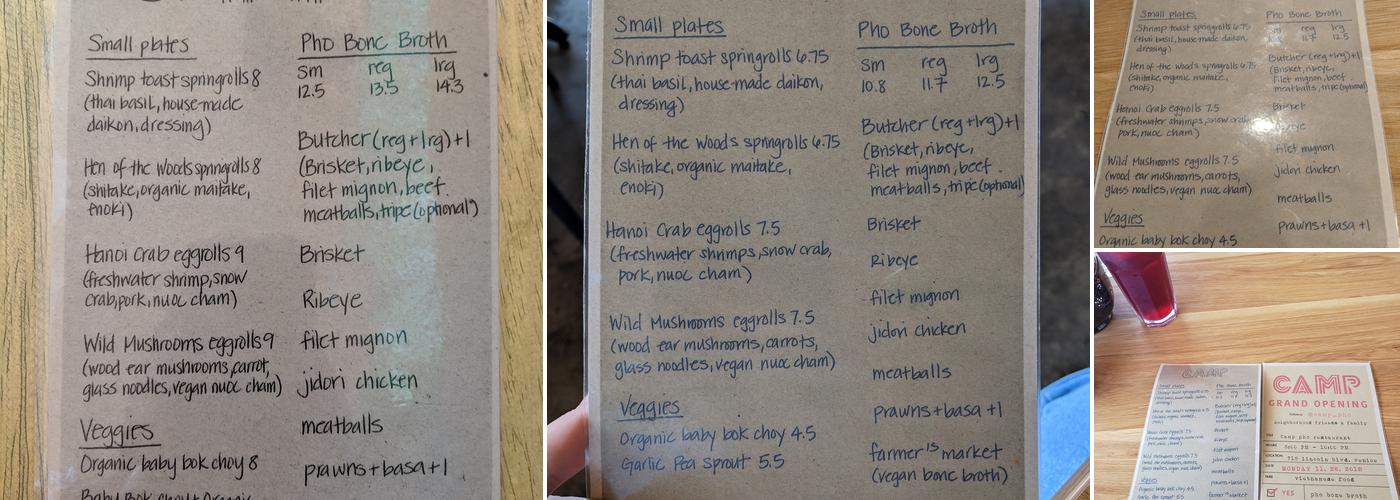 Small plates
Shrimp toast springrolls 8
(thai basil, house-made
daikon, dressing)
Hen of the Woods springrolls 8
(shitake, organic maitake,
enoki)
Hanoi Crab eggrolls 9
(freshwater shrimp, snow
crab, pork, nuoc cham)
Wild Mushrooms eggrolls 9
(wood ear mushrooms, carrot,
glass noodles, vegan nuoc cham)
Veggies
Organic baby bok choy 8
Pho Bone Broth
sm reg lrg
12.5 13.5 14.3
Butcher (reg+lrg) +1
(Brisket, ribeye,
filet mignon, beef
meatballs, tripe (optional)
Brisket
Ribeye
filet mignon
jidori chicken
meatballs
prawns + basa +1
Small plates
Shrimp toast springrolls 6.75
(thai basil, house-made daikon,
dressing)
Hen of the Woods springrolls 6.75
(shitake, organic maitake,
enoki)
Hanoi Crab eggrolls 7.5
(freshwater shrimps, snow crab,
pork, nuoc cham)
Wild Mushrooms eggrolls 7.5
(wood ear mushrooms, carrots,
glass noodles, vegan nuoc cham)
Veggies
Organic baby bok choy 4.5
Garlic Pea sprout 5.5
Pho Bone Broth
sm reg lrg
10.8 11.7 12.5
Butcher (reg+lrg) +1
(Brisket, ribeye,
filet mignon, beef
meatballs, tripe (optional)
Brisket
Ribeye
filet mignon
jidori chicken
meatballs
prawns + basa +1
farmer's market
(vegan bone broth)
Small plates
Shrimp toast springrolls 6.75
(thai basil, house-made daikon,
dressing)
Hen of the Woods springrolls 6.75
(shitake, organic maitake,
enoki)
Hanoi Crab eggrolls 7.5
(freshwater shrimps, snow crab
pork, nuoc cham)
Wild Mushrooms eggrolls 7.5
(wood ear mushrooms, carrots,
glass noodles, vegan nuoc cham)
Veggies
Organic baby bok choy 4.5
Pho Bone Broth
sm reg lrg
11.7 12.5
Butcher (reg+lrg) +1
(Brisket, ribeye,
filet mignon, beef
meatballs, tripe (optional)
Brisket
filet mignon
jidori chicken
meatballs
prawns + basa +1
CAMP
Small plates
Pho Bone Broth
Veggies
CAMP
GRAND OPENING
@camp_pho
neighborhood friends & family
Camp pho restaurant
5:00 PM - 10:00 PM
LOCATION
719 lincoln blvd. venice
DATE
MONDAY 11. 26. 2018
vietnamese food
YES pho bone broth